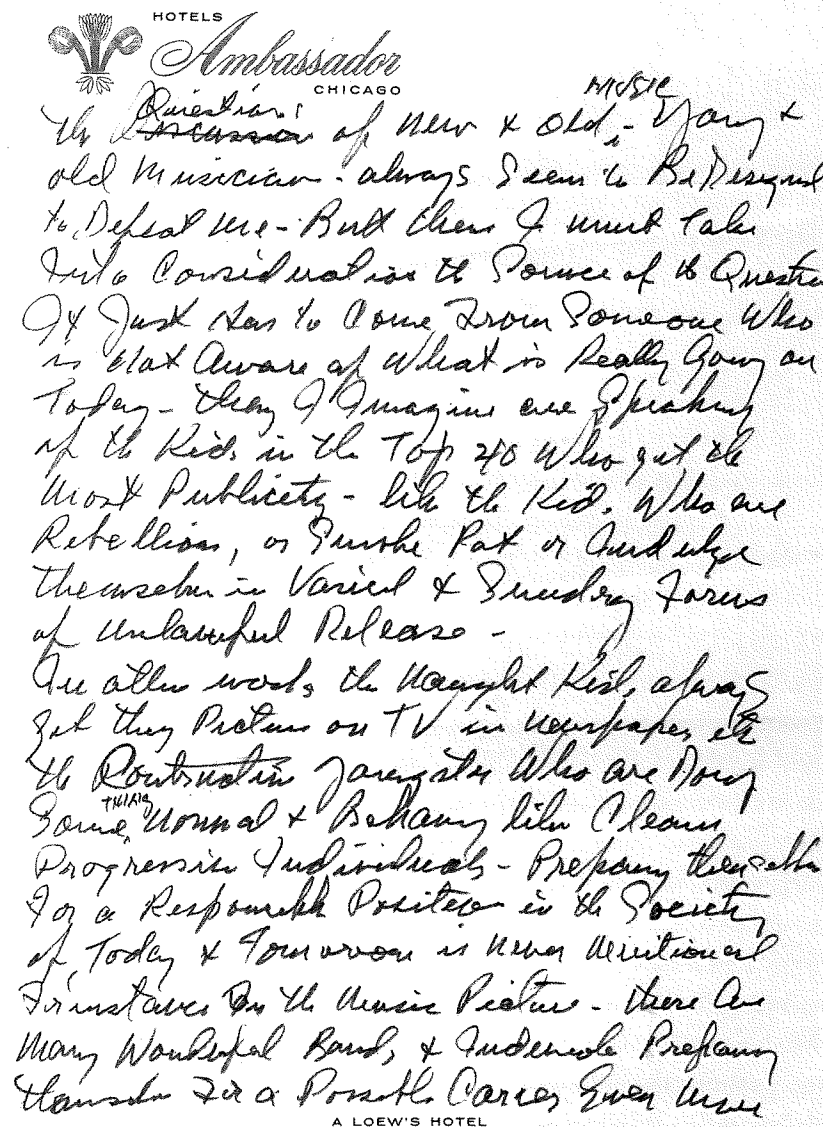 HOTELS
Ambassador
CHICAGO
MUSIC
Question:
the of New & Old, - Young &
old Musician - always Seem to Be Designed
to Defeat me - But then I must Take
Into Consideration the Source of the Question
It Just has to Come From Someone Who
is Not Aware of What is Really Going on
Today - they I Imagine are Speaking
of the Kids in the Top 40 Who get the
Most Publicity - like the Kids Who are
Rebellion, or Smoke Pot or Indulge
themselves in Varied & Sundry Forms
of Unlawful Release -
In other words the Naught Kids always
get they Picture on TV in Newspapers etc
the Youngsters Who are Doing
THING
Some Normal & Behaving like Clean
Progressive Individuals - Preparing themselves
For a Responsible Position in the Society
of Today & Tomorrow is Never Mentioned
Forinstance In the Music Picture - there are
Many Wonderful Bands & Preparing
themselves For a Possible Career Even
A LOEW'S HOTEL